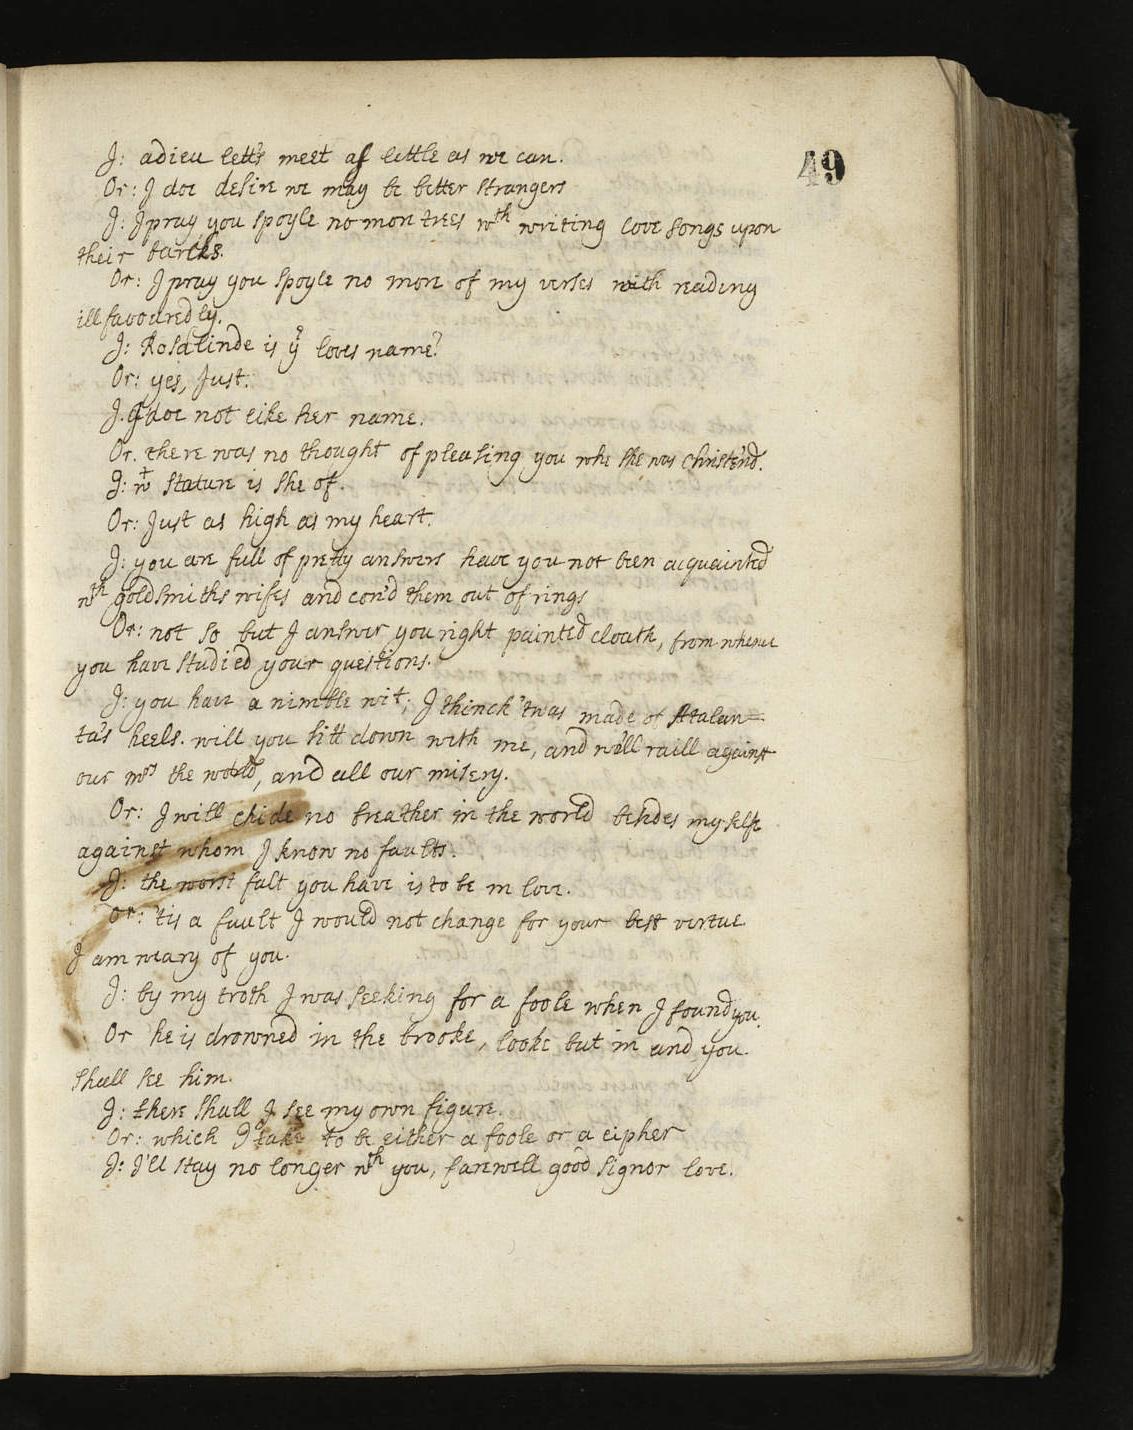 49
J: adieu lett's meet as little as we can.
Or: J doe desire we may be better strangers
J: J pray you spoyle no more trees wth writing love songs upon
their barcks.
Or: J pray you spoyle no more of my verses with reading
ill favouredly.
J: Rosalinde is yr loves name?
Or: yes, Just.
J. J doe not like her name.
Or. there was no thought of pleasing you whe she was Christend.
J: wt stature is she of.
Or: Just as high as my heart.
J: you are full of pretty answers have you not been acquainted
wth goldsmiths wifes and con'd them out of rings
Or: not so but J answer you right painted cloath, from whence
you have studied your questions.
J: you have a nimble wit; J thinck 'twas made of Atalan=
ta's heels. will you sitt down with me, and we'll raill against
our mrs the world, and all our misery.
Or: J will chide no breather in the world besides my self
against whom J know no faults.
J: the worst falt you have is to be in love.
Or: 'tis a fault J would not change for your best virtue
J am weary of you.
J: by my troth J was seeking for a foole when J found you.
Or he is drowned in the brooke, looke but in and you
shall see him.
J: there shall J see my own figure.
Or: which J take to be either a foole or a cipher
J: J'll stay no longer wth you, farewell good signor love.